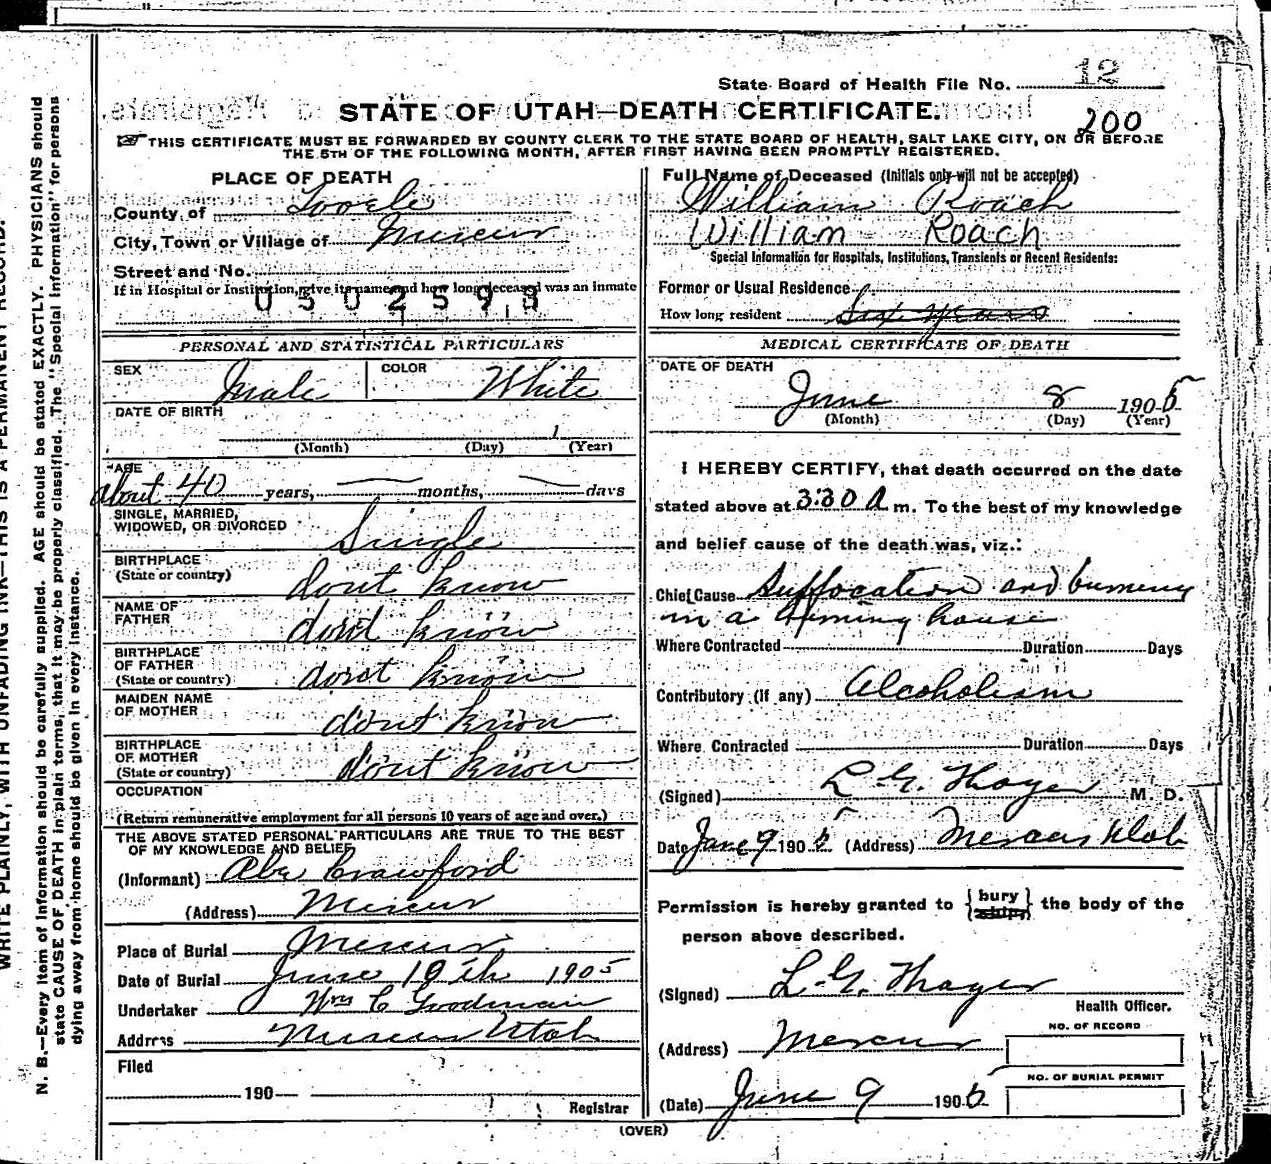 State Board of Health File No. 12
STATE OF UTAH—DEATH CERTIFICATE.
200
THIS CERTIFICATE MUST BE FORWARDED BY COUNTY CLERK TO THE STATE BOARD OF HEALTH, SALT LAKE CITY, ON OR BEFORE
THE 5TH OF THE FOLLOWING MONTH, AFTER FIRST HAVING BEEN PROMPTLY REGISTERED.
PLACE OF DEATH
County of Tooele
City, Town or Village of Mercur
Street and No.
If in Hospital or Institution, give its name and how long deceased was an inmate
0302593
PERSONAL AND STATISTICAL PARTICULARS
SEX Male COLOR White
DATE OF BIRTH
1
(Month) (Day) (Year)
AGE
about 40 years, months, days
SINGLE, MARRIED,
WIDOWED, OR DIVORCED Single
BIRTHPLACE
(State or country) dont know
NAME OF
FATHER dont know
BIRTHPLACE
OF FATHER
(State or country) dont know
MAIDEN NAME
OF MOTHER dont know
BIRTHPLACE
OF MOTHER
(State or country) dont know
OCCUPATION
(Return remunerative employment for all persons 10 years of age and over.)
THE ABOVE STATED PERSONAL PARTICULARS ARE TRUE TO THE BEST
OF MY KNOWLEDGE AND BELIEF
(Informant) Abe Crawford
(Address) Mercur
Place of Burial Mercur
Date of Burial June 10th 1905
Undertaker Wm C Goodman
Address Mercur Utah
Filed
190
Registrar
Full Name of Deceased (Initials only will not be accepted)
William Roach
William Roach
Special Information for Hospitals, Institutions, Transients or Recent Residents:
Former or Usual Residence
How long resident Six years
MEDICAL CERTIFICATE OF DEATH
DATE OF DEATH
June 8 1905
(Month) (Day) (Year)
I HEREBY CERTIFY, that death occurred on the date
stated above at 3:30 A m. To the best of my knowledge
and belief cause of the death was, viz.:
Chief Cause Suffocation and burning
in a burning house
Where Contracted Duration Days
Contributory (if any) Alcoholism
Where Contracted Duration Days
(Signed) L. G. Thayer M. D.
Date June 9 1905. (Address) Mercur Utah
Permission is hereby granted to {bury the body of the
person above described.
(Signed) L. G. Thayer
Health Officer.
(Address) Mercur
NO. OF RECORD
NO. OF BURIAL PERMIT
(Date) June 9 1905
(OVER)
WRITE PLAINLY, WITH UNFADING INK—THIS IS A PERMANENT RECORD.
N. B.—Every item of information should be carefully supplied. AGE should be stated EXACTLY. PHYSICIANS should
state CAUSE OF DEATH in plain terms, that it may be properly classified. The "Special Information" for persons
dying away from home should be given in every instance.